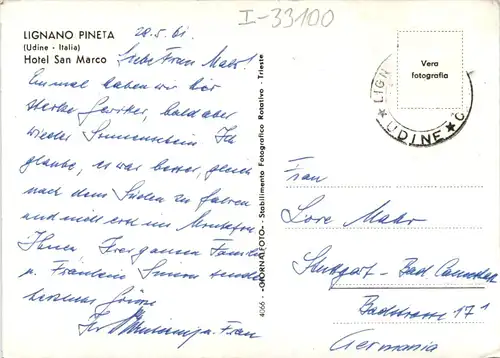 I-33100
LIGNANO PINETA
(Udine - Italia)
Hotel San Marco
28.5.61
Liebe Frau Mahr!
Einmal haben wir hier
starke Gewitter, bald aber
wieder Sonnenschein. Ich
glaube, es war besser, gleich
nach dem Süden zu fahren
und nicht erst im Montafon
Ihnen, Familie
u. Fräulein Simon senden
herzliche Grüsse
Ihr u. Frau
4066 - «GIORNALFOTO» - Stabilimento Fotografico Rotativo - Trieste
Vera
fotografia
LIGN
UDINE
Frau
Lore Mahr
Stuttgart - Bad Cannstatt
Badstrasse 17¹
Germania